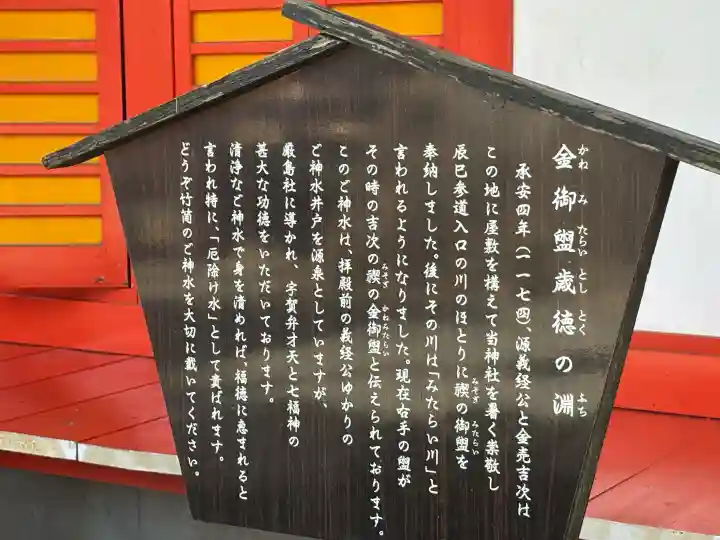 金御盥歳徳の淵
かね み たらい とし とく ふち
承安四年(一一七四、源義経公と金売吉次は
この地に屋敷を構えて当神社を暑く崇敬し
辰巳参道入口の川のほとりに禊の御盥を
みそぎ みたらい
奉納しました。後にその川は「みたらい川」と
言われるようになりました。現在右手の盥が
その時の吉次の禊の金御盥と伝えられております。
みそぎ かねみたらい
このご神水は、拝殿前の義経公ゆかりの
ご神水井戸を源泉としていますが、
厳島社に導かれ、宇賀弁才天と七福神の
甚大な功徳をいただいております。
清浄なご神水で身を清めれば、福徳に恵まれると
言われ特に、「厄除け水」として貴ばれます。
どうぞ竹筒のご神水を大切に戴いてください。